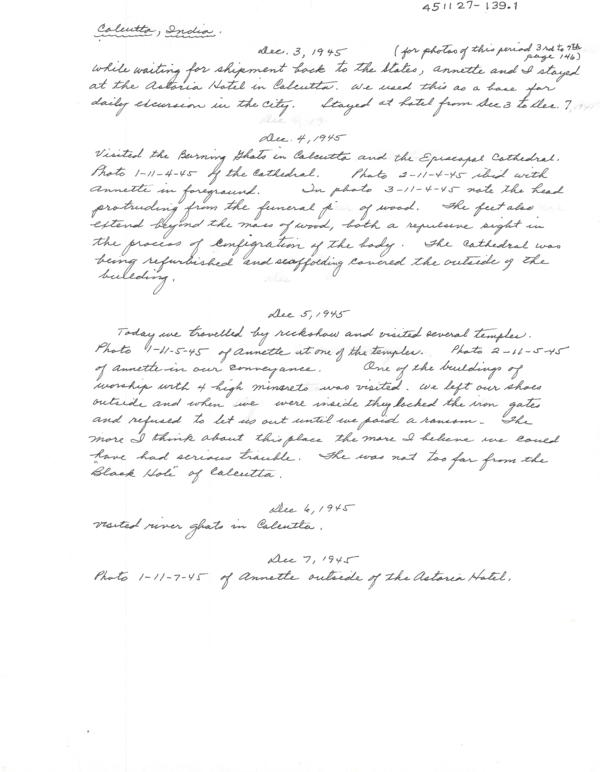 451127-139.1
Calcutta, India.
Dec. 3, 1945 (for photos of this period 3rd to 7th
page 146)
while waiting for shipment back to the States, Annette and I stayed
at the Astoria Hotel in Calcutta. We used this as a base for
daily excursion in the city. Stayed at hotel from Dec 3 to Dec. 7, 1945
Dec. 4, 1945
Visited the Burning Ghats in Calcutta and the Episcopal Cathedral.
Photo 1-11-4-45 of the Cathedral. Photo 2-11-4-45 ibid with
Annette in foreground. In photo 3-11-4-45 note the head
protruding from the funeral of wood. The feet also
extend beyond the mass of wood, both a repulsive sight in
the process of configration of the body. The Cathedral was
being refurbished and scaffolding covered the outside of the
building.
Dec 5, 1945
Today we travelled by rickshow and visited several temples.
Photo 1-11-5-45 of Annette at one of the temples. Photo 2-11-5-45
of Annette in our conveyance. One of the buildings of
worship with 4 high minarets was visited. We left our shoes
outside and when we were inside they locked the iron gates
and refused to let us out until we paid a ransom. The
more I think about this place the more I believe we could
have had serious trouble. The was not too far from the
"Black Hole" of Calcutta.
Dec 6, 1945
Visited river ghats in Calcutta.
Dec 7, 1945
Photo 1-11-7-45 of Annette outside of the Astoria Hotel.